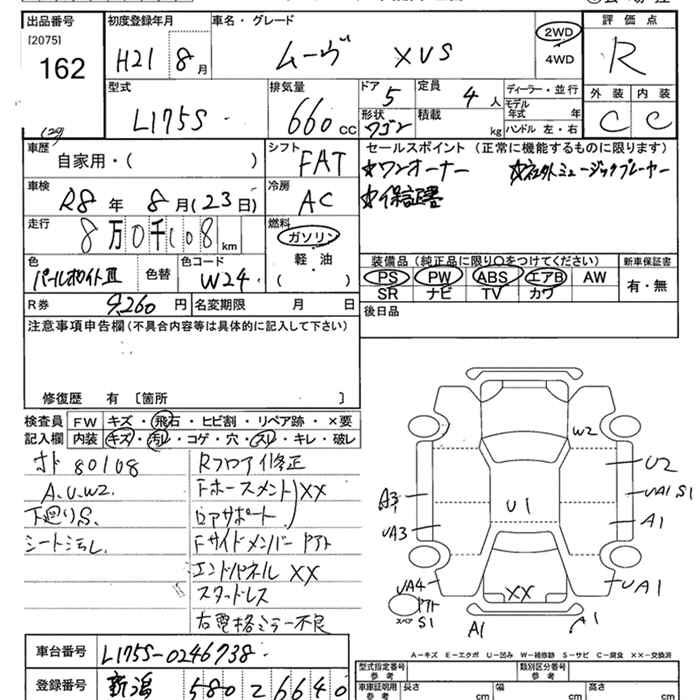 出品番号
[2075]
162
(29)
初度登録年月
H21 8 月
車名・グレード
ムーヴ XVS
2WD
4WD
評価点
R
外装 内装
C C
型式
L175S
排気量
660 cc
ドア
5
形状
ワゴン
定員
4 人
積載
kg
ディーラー・並行
モデル年式 年
ハンドル 左・右
車歴
自家用・( )
シフト
FAT
セールスポイント (正常に機能するものに限ります)
☆ワンオーナー ☆社外ミュージックプレーヤー
☆保証書
車検
R8 年 8 月 (23 日)
冷房
AC
走行
8 万 0 千 1 0 8 km
燃料
ガソリン
軽・油
( )
色
パールホワイトIII
色替
色コード
W24
装備品 (純正品に限り○をつけてください) 新車保証書
PS PW ABS エアB AW
SR ナビ TV カワ
有・無
R券 9,260 円
名変期限 月 日
後日品
注意事項申告欄 (不具合内容等は具体的に記入して下さい)
修復歴 有 [箇所 ]
検査員
記入欄
FW キズ・飛石・ヒビ割・リペア跡・×要
内装 キズ・汚れ・コゲ・穴・スリ・キレ・破レ
オド 80108
A.U.W2.
下廻りS.
シート汚レ
Rフロア修正
Fホースメント XX
ロアサポート
Fサイドメンバー
エンドパネル XX
スタッドレス
右電格ミラー不良
W2
U2
UA1 S1
A1
A3
UA3
U1
UA4
XX
UA1
スペア
S1
A1
A1
A-キズ E-エクボ U-凹み W-補修跡 S-サビ C-腐食 XX-交換済
車台番号 L175S-0246738
登録番号 新潟 580 2 6640
型式指定番号
参考
類別区分番号
参考
車庫証明用
参考
長さ cm
幅 cm
高さ cm